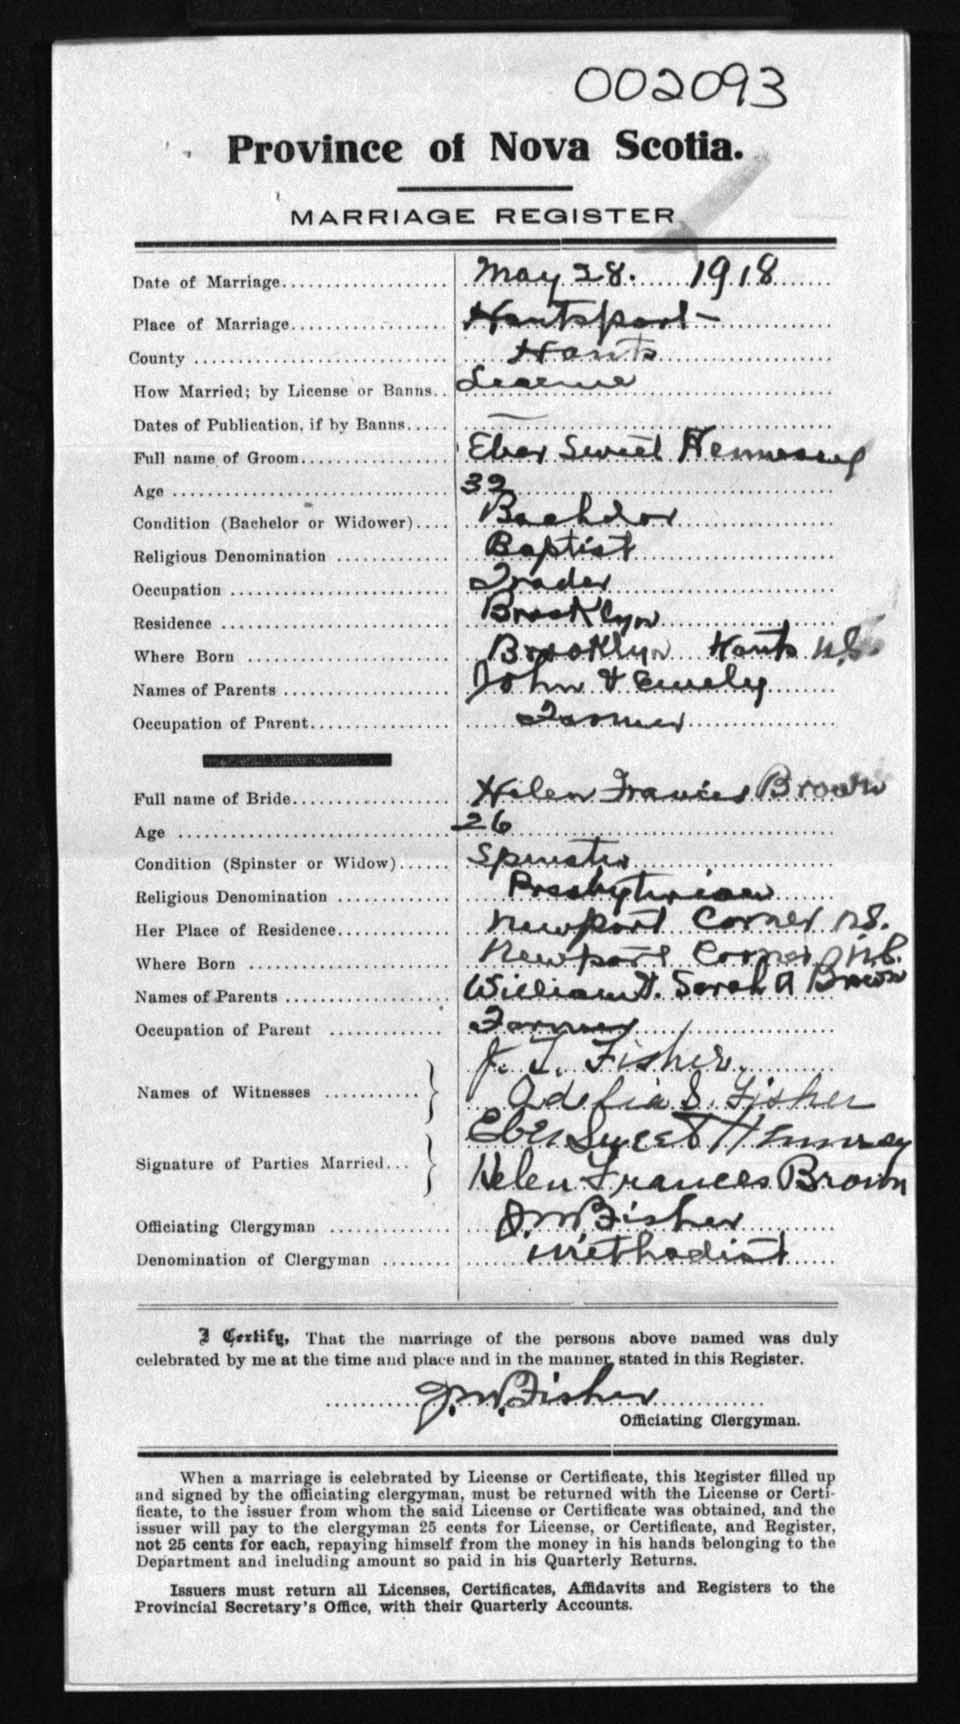 002093
Province of Nova Scotia.
MARRIAGE REGISTER
Date of Marriage May 28. 1918
Place of Marriage Hantsport
County Hants
How Married; by License or Banns License
Dates of Publication, if by Banns
Full name of Groom Eber Sweet Hennessey
Age 32
Condition (Bachelor or Widower) Bachelor
Religious Denomination Baptist
Occupation Trader
Residence Brooklyn
Where Born Brooklyn Hants N.S.
Names of Parents John & Emily
Occupation of Parent Farmer
Full name of Bride Helen Frances Brown
Age 26
Condition (Spinster or Widow) Spinster
Religious Denomination Presbyterian
Her Place of Residence Newport Corner N.S.
Where Born Newport Corner N.S.
Names of Parents William H. Sarah A Brown
Occupation of Parent Farmer
J. T. Fisher
Names of Witnesses
S. Fisher
Eber Sweet Hennessey
Signature of Parties Married
Helen Frances Brown
Officiating Clergyman J.W. Fisher
Denomination of Clergyman Methodist
I Certify, That the marriage of the persons above named was duly
celebrated by me at the time and place and in the manner stated in this Register.
J.W. Fisher
Officiating Clergyman.
When a marriage is celebrated by License or Certificate, this Register filled up
and signed by the officiating clergyman, must be returned with the License or Certi-
ficate, to the issuer from whom the said License or Certificate was obtained, and the
issuer will pay to the clergyman 25 cents for License, or Certificate, and Register,
not 25 cents for each, repaying himself from the money in his hands belonging to the
Department and including amount so paid in his Quarterly Returns.
Issuers must return all Licenses, Certificates, Affidavits and Registers to the
Provincial Secretary's Office, with their Quarterly Accounts.